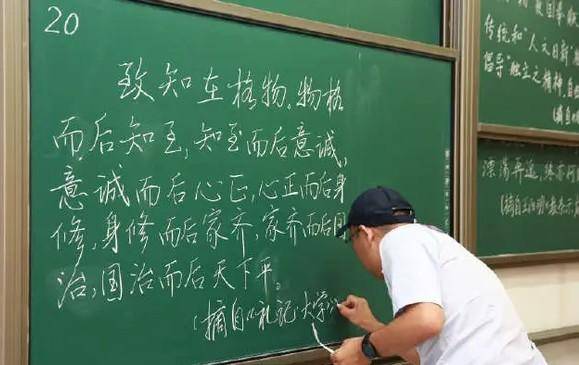 20
致知在格物，物格
而后知至，知至而后意诚，
意诚而后心正，心正而后身
修，身修而后家齐，家齐而后国
治，国治而后天下平。
（摘自《礼记·大学》
传统和“人文日新”
倡导“独立之精神，自由
（摘自
漂荡奔逸，终亦何
（摘自王阳明《教条示